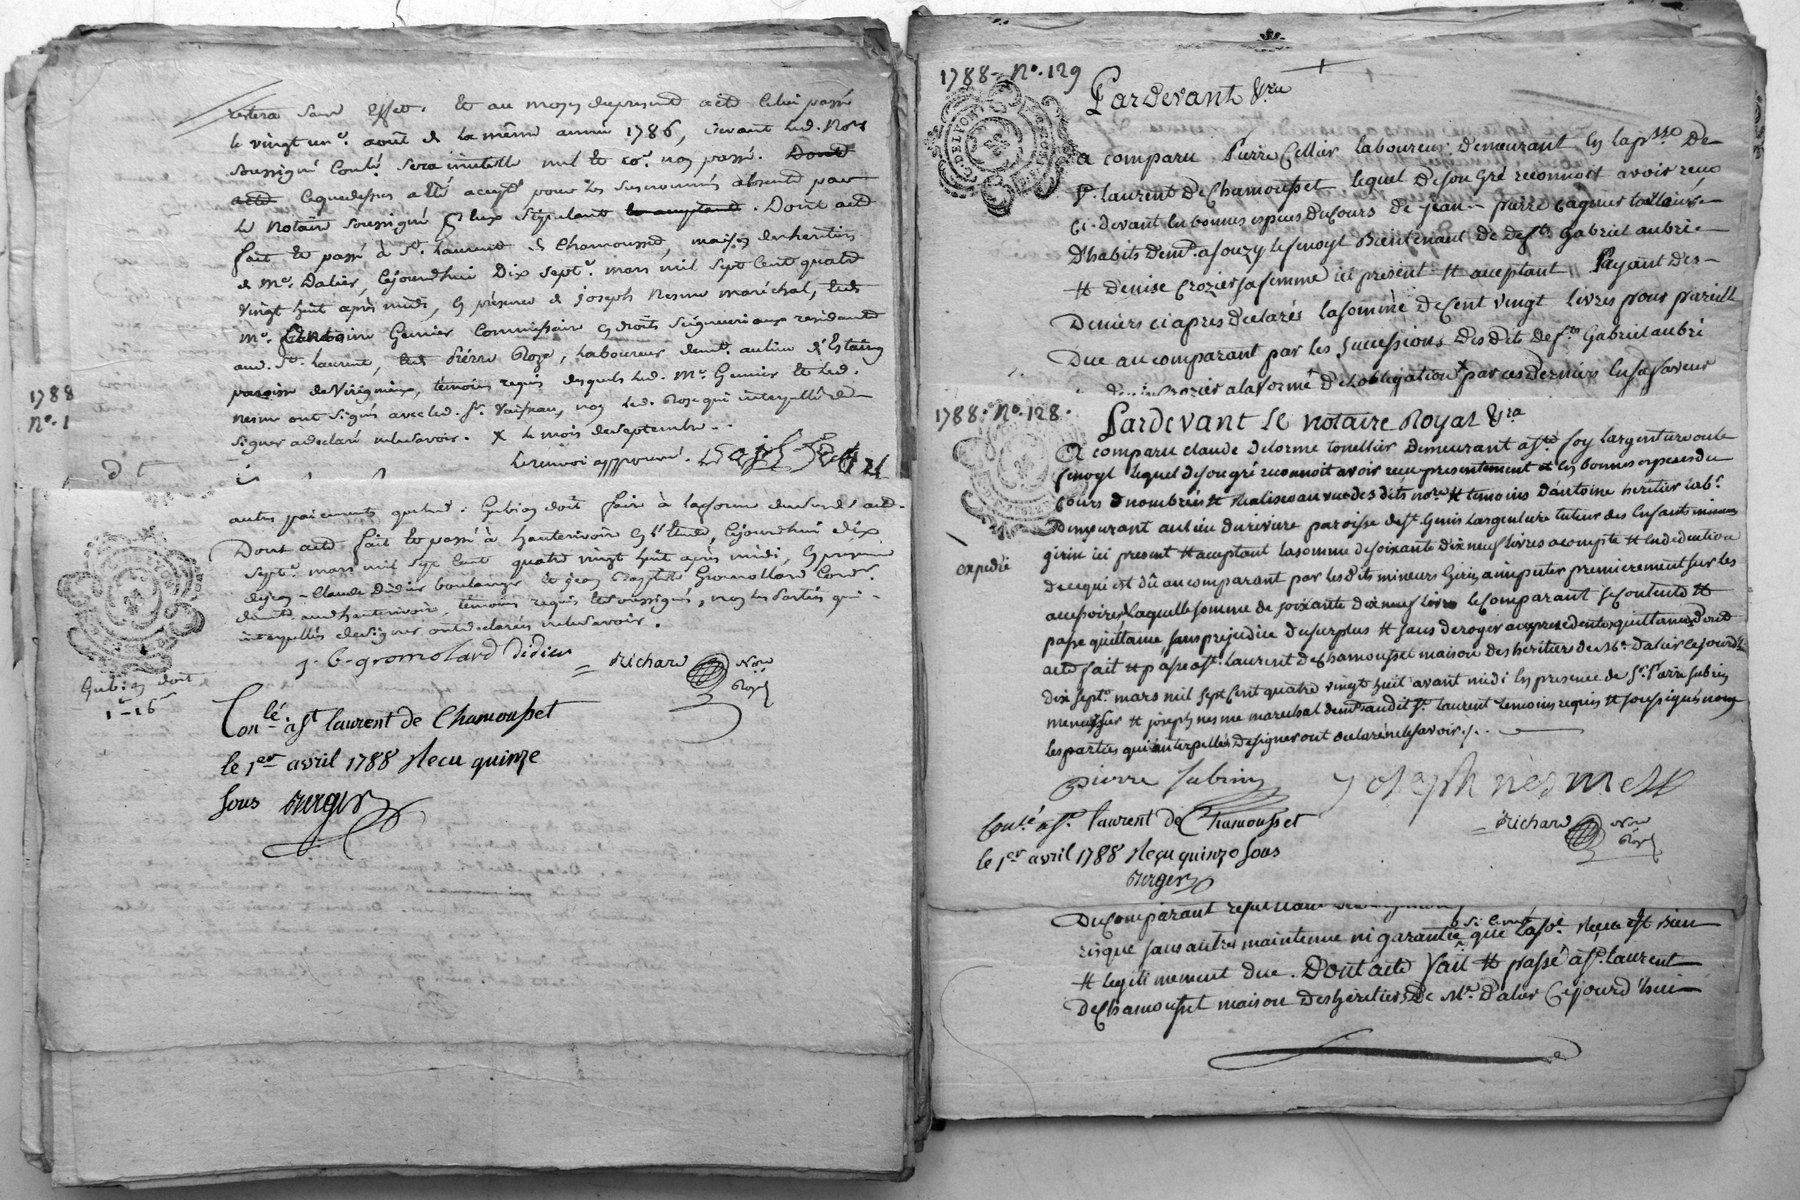 restera sans effet. Et au moyen du present acte Celui passé
le vingt un.e aout de la même année 1786, devant led. No.re
soussigné Conlé. Sera inutille nul et co.e non passé. Dont
acte
Le Notaire soussigné Stipulant et acceptant. Dont acte
fait et passé à St. Laurent de Chamousset, maison des heritiers
de Me. Dalier, Cejourdhui Dix sept.e mars mil sept Cent quatre
vingt huit après midi, En présence de Joseph Nesme maréchal, et de
Me. Antoine Gemier Commissaire en droits Seigneuriaux residants
aud. St. Laurent, et de Pierre Roze, Laboureur dem.t au lieu d'Estaing
paroisse de Virignieux, témoins requis desquels led. Me. Gemier et led.
Nesme ont signé avec led. Sr. non led. Roze qui interpellé de
signer a declaré ne le savoir. X le mois de Septembre
Le renvoi approuvé.
1788
No. 1
autres paiements que led. Gubian doit faire à la forme dud. acte.
Dont acte fait et passé à hauterivoire En l'Etude, Cejourdhui dix
sept.e mars mil sept Cent quatre vingt huit après midi, En presence
de Jean-Claude Didier boulanger et Jean Baptiste Gromollard Cord.r
dem.ts aud. hauterivoire, témoins requis et soussignés, non les Parties qui
interpellés de signer ont declarés ne le savoir.
J. B. gromolard Didier
Richard Nore Royal
Gubian doit
Conlé. à St laurent de Chamousset
le 1er avril 1788 Reçu quinze
sous Burgier
1788 - No. 129
Pardevant &ra
A comparu Pierre Cellier laboureur demeurant En la p.sse De
St. laurent De Chamousset, lequel De son Gré reconnoit avoir recu
Ci-devant En bonnes especes du Cours de Jean-pierre Cagnier tailleur
D'habits Dem.t a Souzy Bientenant de Defts Gabriel aubri
et Denise Crozier sa femme ici present et acceptant Payant des
Deniers ci apres declarés la somme de Cent vingt livres pour pareille
Due au comparant par les successions Desdits Defts Gabriel aubri
Denise Crozier a la forme De l'obligation par ces derniers En sa faveur
1788. No. 128.
Expedié
Pardevant Le Notaire Royal &ra
A comparu claude Delorme tonellier Demeurant a Ste foy l'argentiere ou le
lequel De son gré reconnoit avoir recu presentement En bonnes especes du
Cours nombrées et realisées au vu des dits nore et temoins D'antoine heritier lab.r
Demeurant au lieu du revure paroisse de St Genis L'argentiere tuteur des Enfants mineurs
girin ici present et acceptant la somme de soixante Dix neuf livres a compte et En deduction
de ce qui est dû au comparant par les dits mineurs Girin a imputer premierement sur les
accessoires, Laquelle somme de soixante dix neuf livres le comparant se contente et
passe quittance, sans prejudice du surplus et sans deroger aux precedentes quittances, Dont
acte fait et passé a St. Laurent de Chamousset maison des heritiers de Me. Dalier Cejourd'hui
dix sept.e mars mil sept Cent quatre vingt huit avant midi En presence de Sr. Pierre Subrin
menuisier et joseph nesme marechal dem.ts audit St. laurent temoins requis et soussignés non
les parties qui interpellés de signer ont declaré ne le savoir ./.
pierre subrin joseph nesme
Richard Nore Royal
Conlé. à St. laurent de Chamousset
le 1er avril 1788 Reçu quinze sous
Burgier
Du comparant
risque sans autre maintenue ni garantie que lad. Reçue Est bien
et legitimement due. Dont acte Fait et passé a St. laurent
De Chamousset maison Des heritiers De Me. Dalier Cejourd'hui